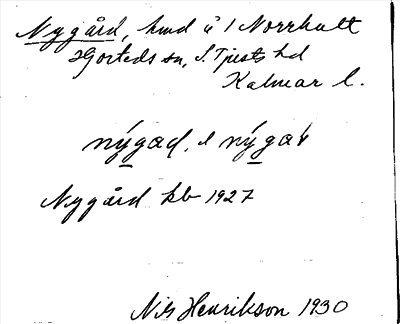 Nygård, hmd å 1 Norrhult
Hjorteds sn, S. Tjusts hd
Kalmar l.
nýgaḍ, l nýgaṙ
Nygård kb 1927
Nils Henrikson 1930